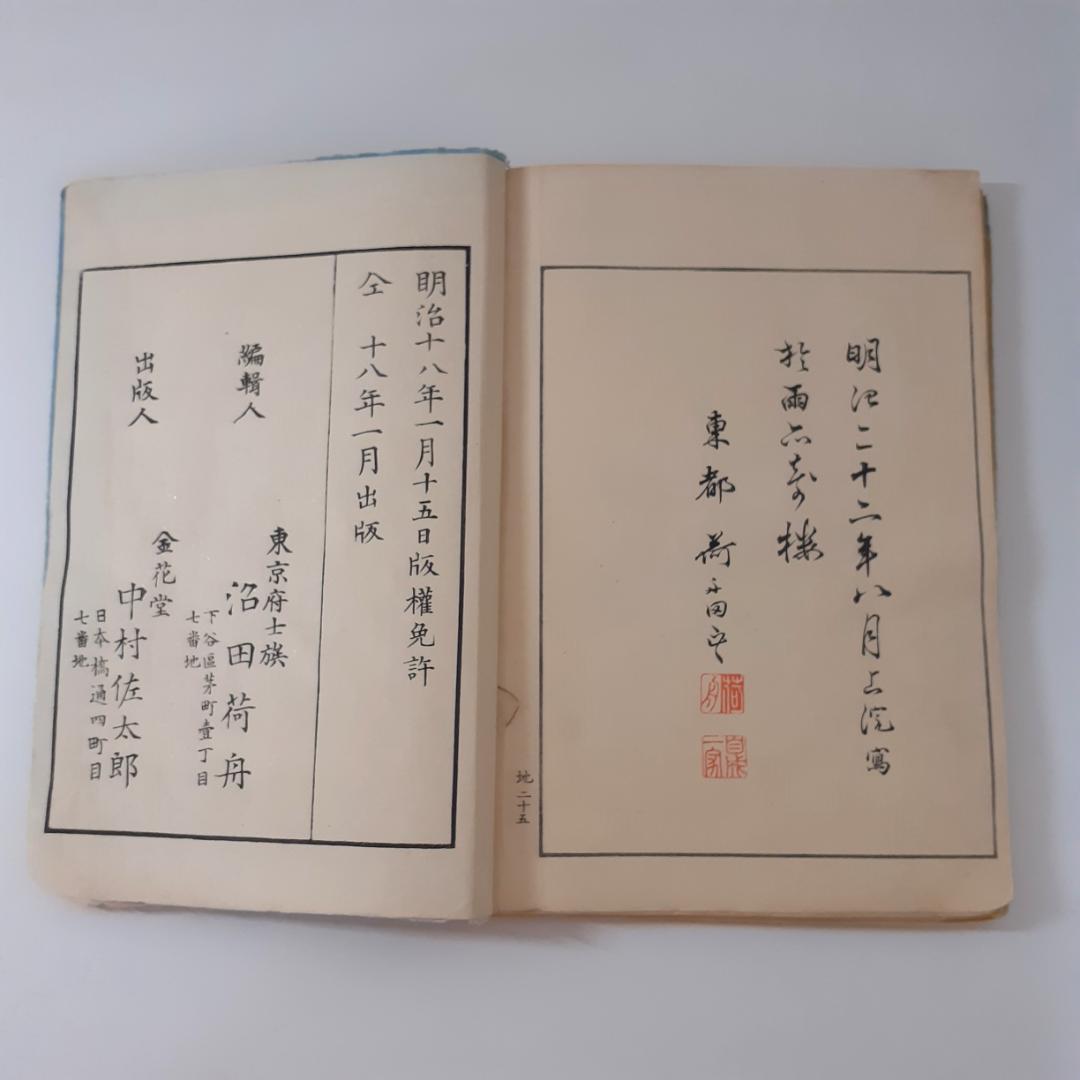 明治二十二年八月上浣寫
於雨亦奇樓
東都 荷
地二十五
明治十八年一月十五日版權免許
仝 十八年一月出版
編輯人
東京府士族
沼田荷舟
下谷區茅町壹丁目
七番地
出版人
金花堂
中村佐太郎
日本橋通四町目
七番地